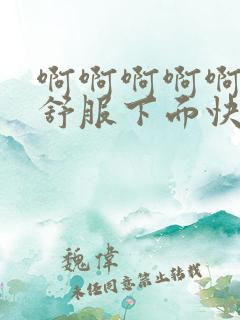 啊啊啊啊啊
舒服下而快
魏偉
未经同意禁止转载